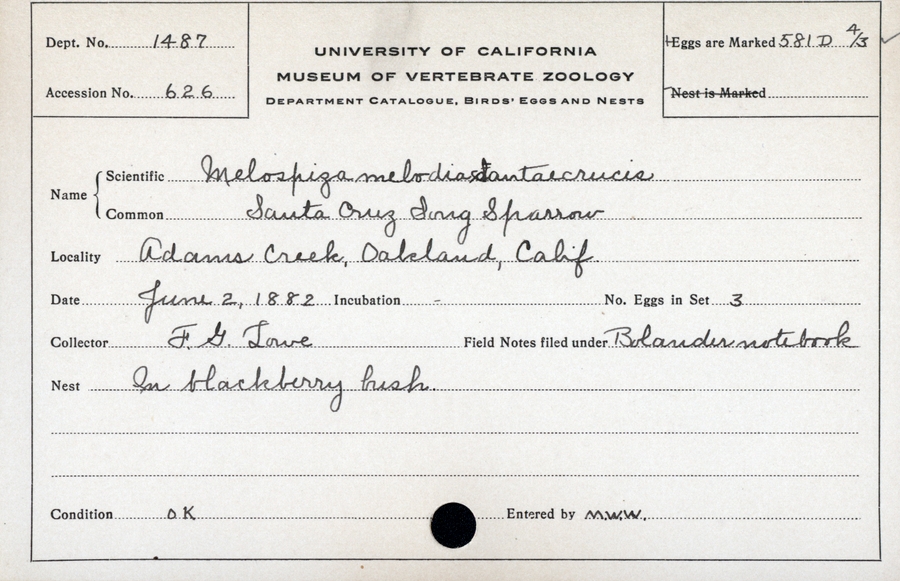 Dept. No. 1487
Accession No. 626
UNIVERSITY OF CALIFORNIA
MUSEUM OF VERTEBRATE ZOOLOGY
DEPARTMENT CATALOGUE, BIRDS' EGGS AND NESTS
Eggs are Marked 581D 4/3
Nest is Marked
Name
Scientific Melospiza melodia santaecrucis
Common Santa Cruz Song Sparrow
Locality Adams Creek, Oakland, Calif.
Date June 2, 1882 Incubation - No. Eggs in Set 3
Collector F. G. Lowe Field Notes filed under Bolander notebook
Nest In blackberry bush.
Condition OK Entered by M.W.W.